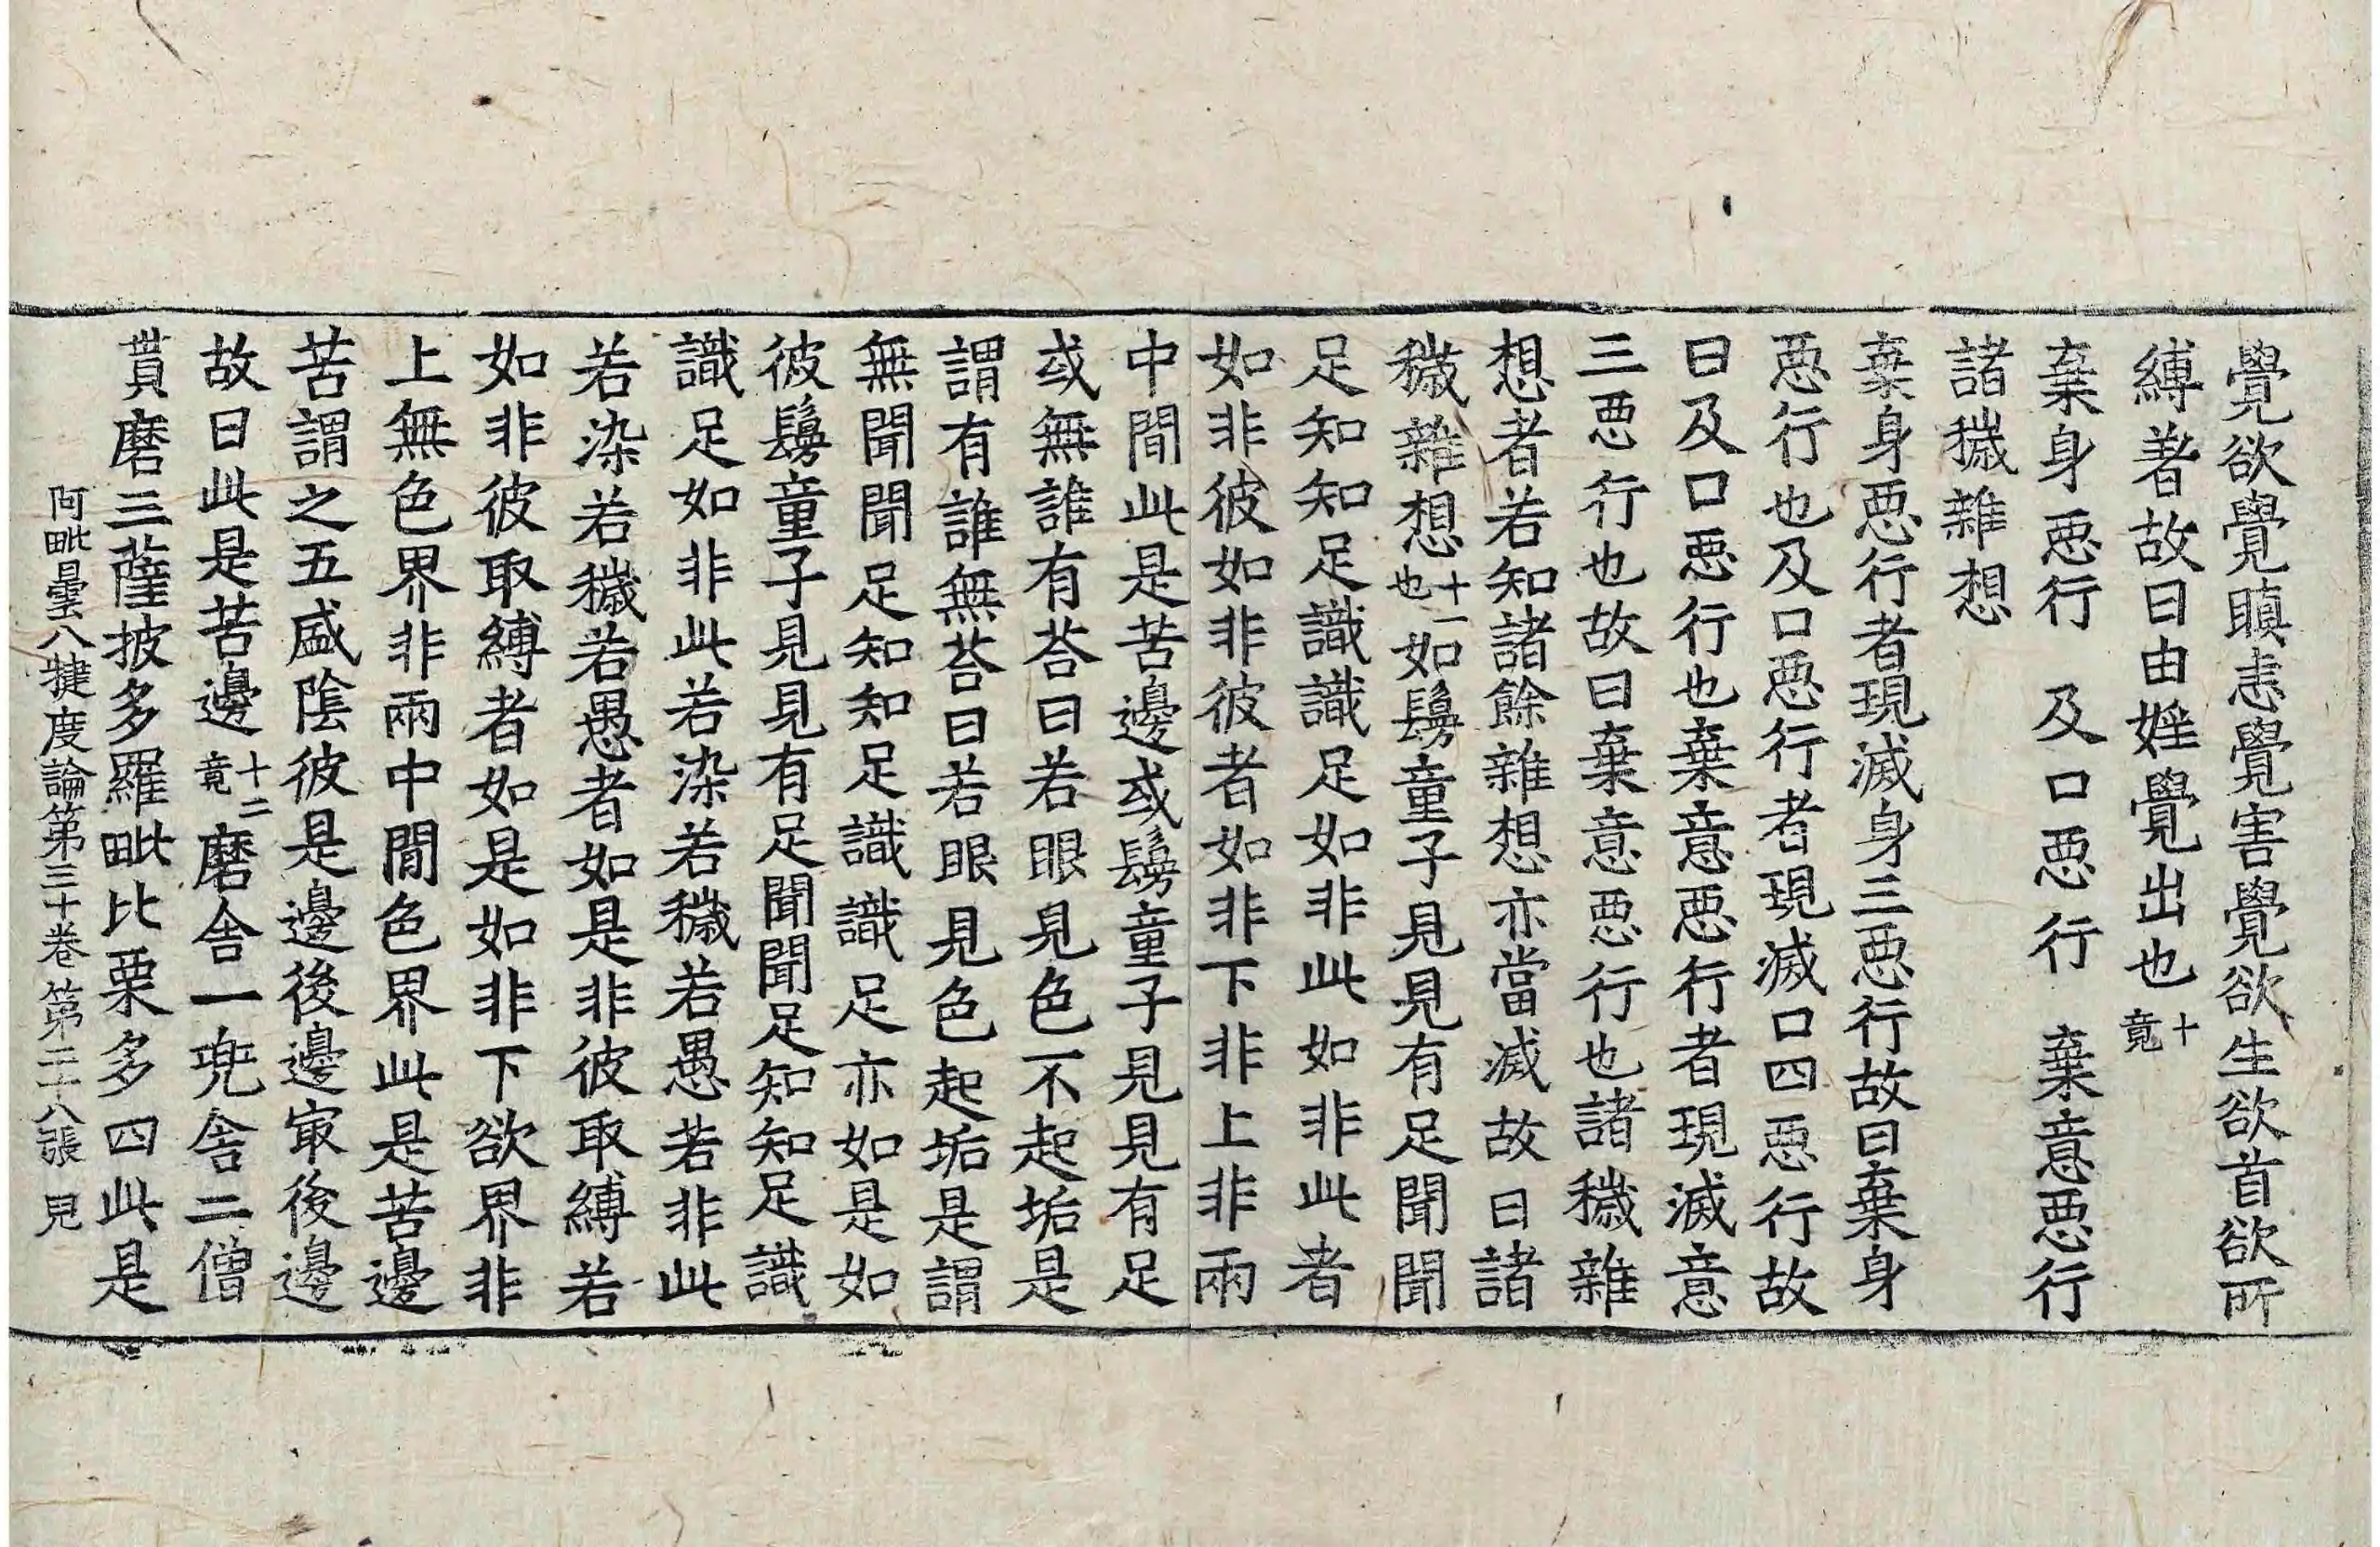 覺欲覺瞋恚覺害覺欲生欲首欲所
縛著故曰由婬覺出也十竟
棄身惡行 及口惡行 棄意惡行
諸穢雜想
棄身惡行者現滅身三惡行故曰棄身
惡行也及口惡行者現滅口四惡行故
曰及口惡行也棄意惡行者現滅意
三惡行也故曰棄意惡行也諸穢雜
想者若知諸餘雜想亦當滅故曰諸
穢雜想十一也如鬘童子見見有足聞聞
足知知足識識足如非此如非此者
如非彼如非彼者如非下非上非兩
中間此是苦邊或鬘童子見見有足
或無誰有荅曰若眼見色不起垢是
謂有誰無荅曰若眼見色起垢是謂
無聞聞足知知足識識足亦如是如
彼鬘童子見見有足聞聞足知知足識
識足如非此若染若穢若愚若非此
若染若穢若愚者如是非彼取縛若
如非彼取縛者如是如非下欲界非
上無色界非兩中間色界此是苦邊
苦謂之五盛陰彼是邊後邊㝡後邊
故曰此是苦邊十二竟磨舍一兜舍二僧
貰磨三薩披多羅毗比栗多四此是
阿毗曇八揵度論第三十卷 第二十八張 見